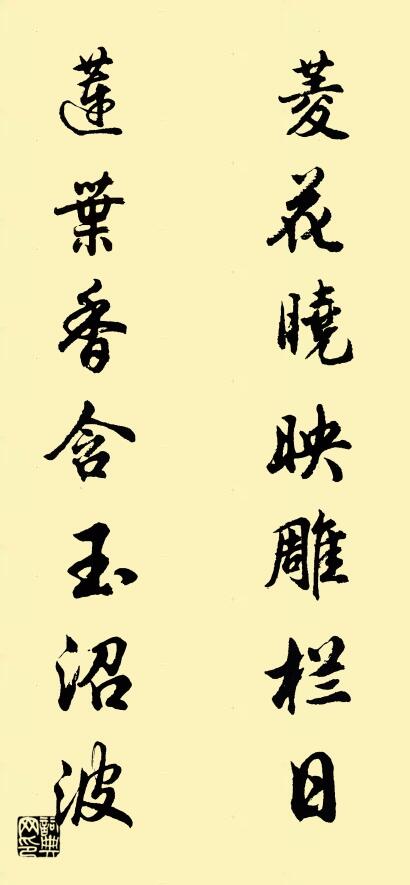 菱花曉映雕栏日
蓮葉香含玉沼波